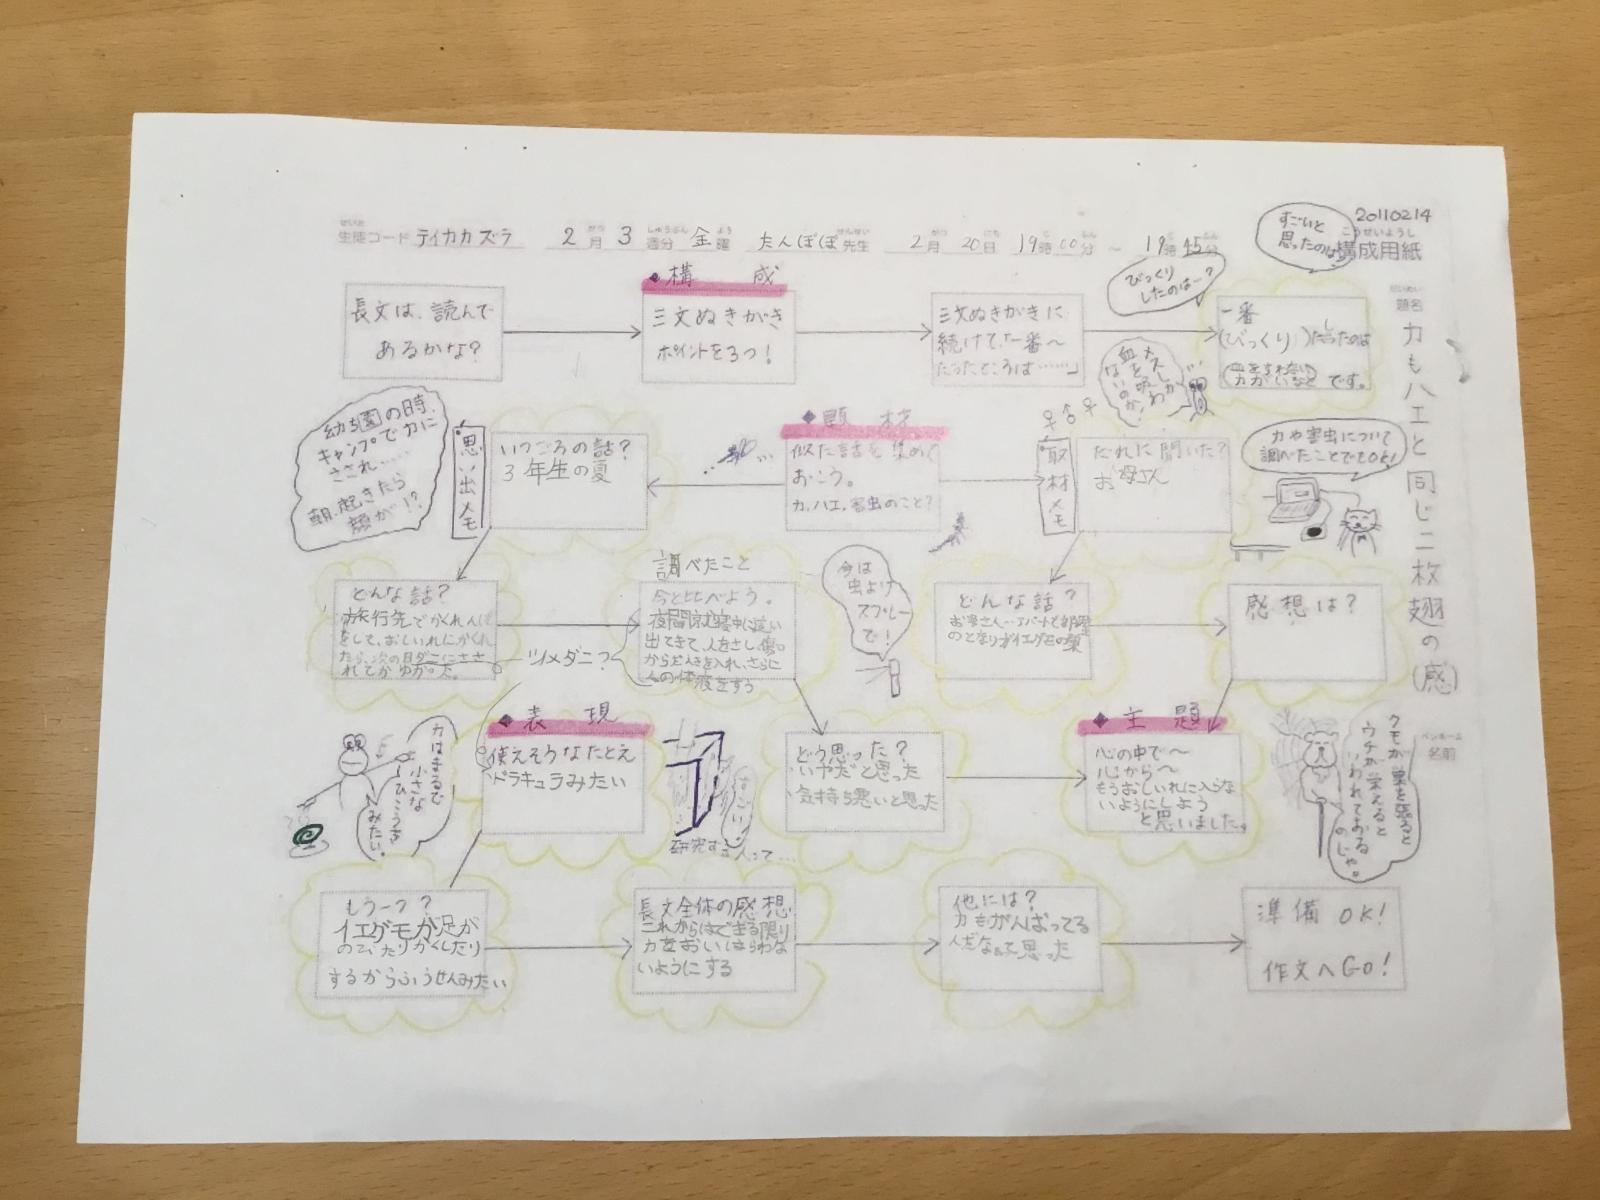 20110214
構成用紙
生徒コード テイカカズラ 2月 3週分 金曜 たんぽぽ先生 2月 20日 19時00分 ~ 19時45分
題名
カもハエと同じ二枚翅の(感)
ペンネーム
名前
すごいと
思ったのは
びっくり
したのはー?
長文は、読んで
あるかな?
◆構 成
三文ぬきがき
ポイントを3つ!
三文ぬきがきに
続けて「一番〜
だったところは……」
一番
(びっくり)したのは
です。
メスしか
血を吸わ
ないのか!
幼ち園の時、
キャンプでカに
さされ……
朝、起きたら
顔が!?
思い出メモ
いつごろの話?
3年生の夏
◆題 材
似た話を集めて
おこう。
カ、ハエ、害虫のこと?
♀♂♀
取材メモ
だれに聞いた?
お母さん
カや害虫について
調べたことでもOK!
どんな話?
旅行先でかくれんぼ
をして、おしいれにかくれ
たら、次の日ダニにささ
れてかゆかった。
ツメダニ?
調べたこと
今と比べよう。
夜間就寝中に這い
出てきて、人をさし傷口
からだ液を入れ、さらに
人の体液をすう
今は
虫よけ
スプレー
で!
どんな話?
お母さん…アパートで部屋
のとなりがイエグモの巣
感想は?
カはまるで
小さな
ひこうき
みたい。
◆表 現
使えそうなたとえ
ドラキュラみたい
すごい!
研究する人って…
どう思った?
いやだと思った
気持ち悪いと思った
◆主 題
心の中で〜
心から〜
もうおしいれに入らな
いようにしよう
と思いました。
クモが巣を張ると
ウチが栄えると
いわれておる
のじゃ。
もう一つ?
イエグモが足が
のびたりかくしたり
するからふうせんみたい
長文全体の感想
これからはできる限り
カをおいはらわな
いようにする
他には?
カもがんばってる
んだなぁって思った
準備OK!
作文へGO!